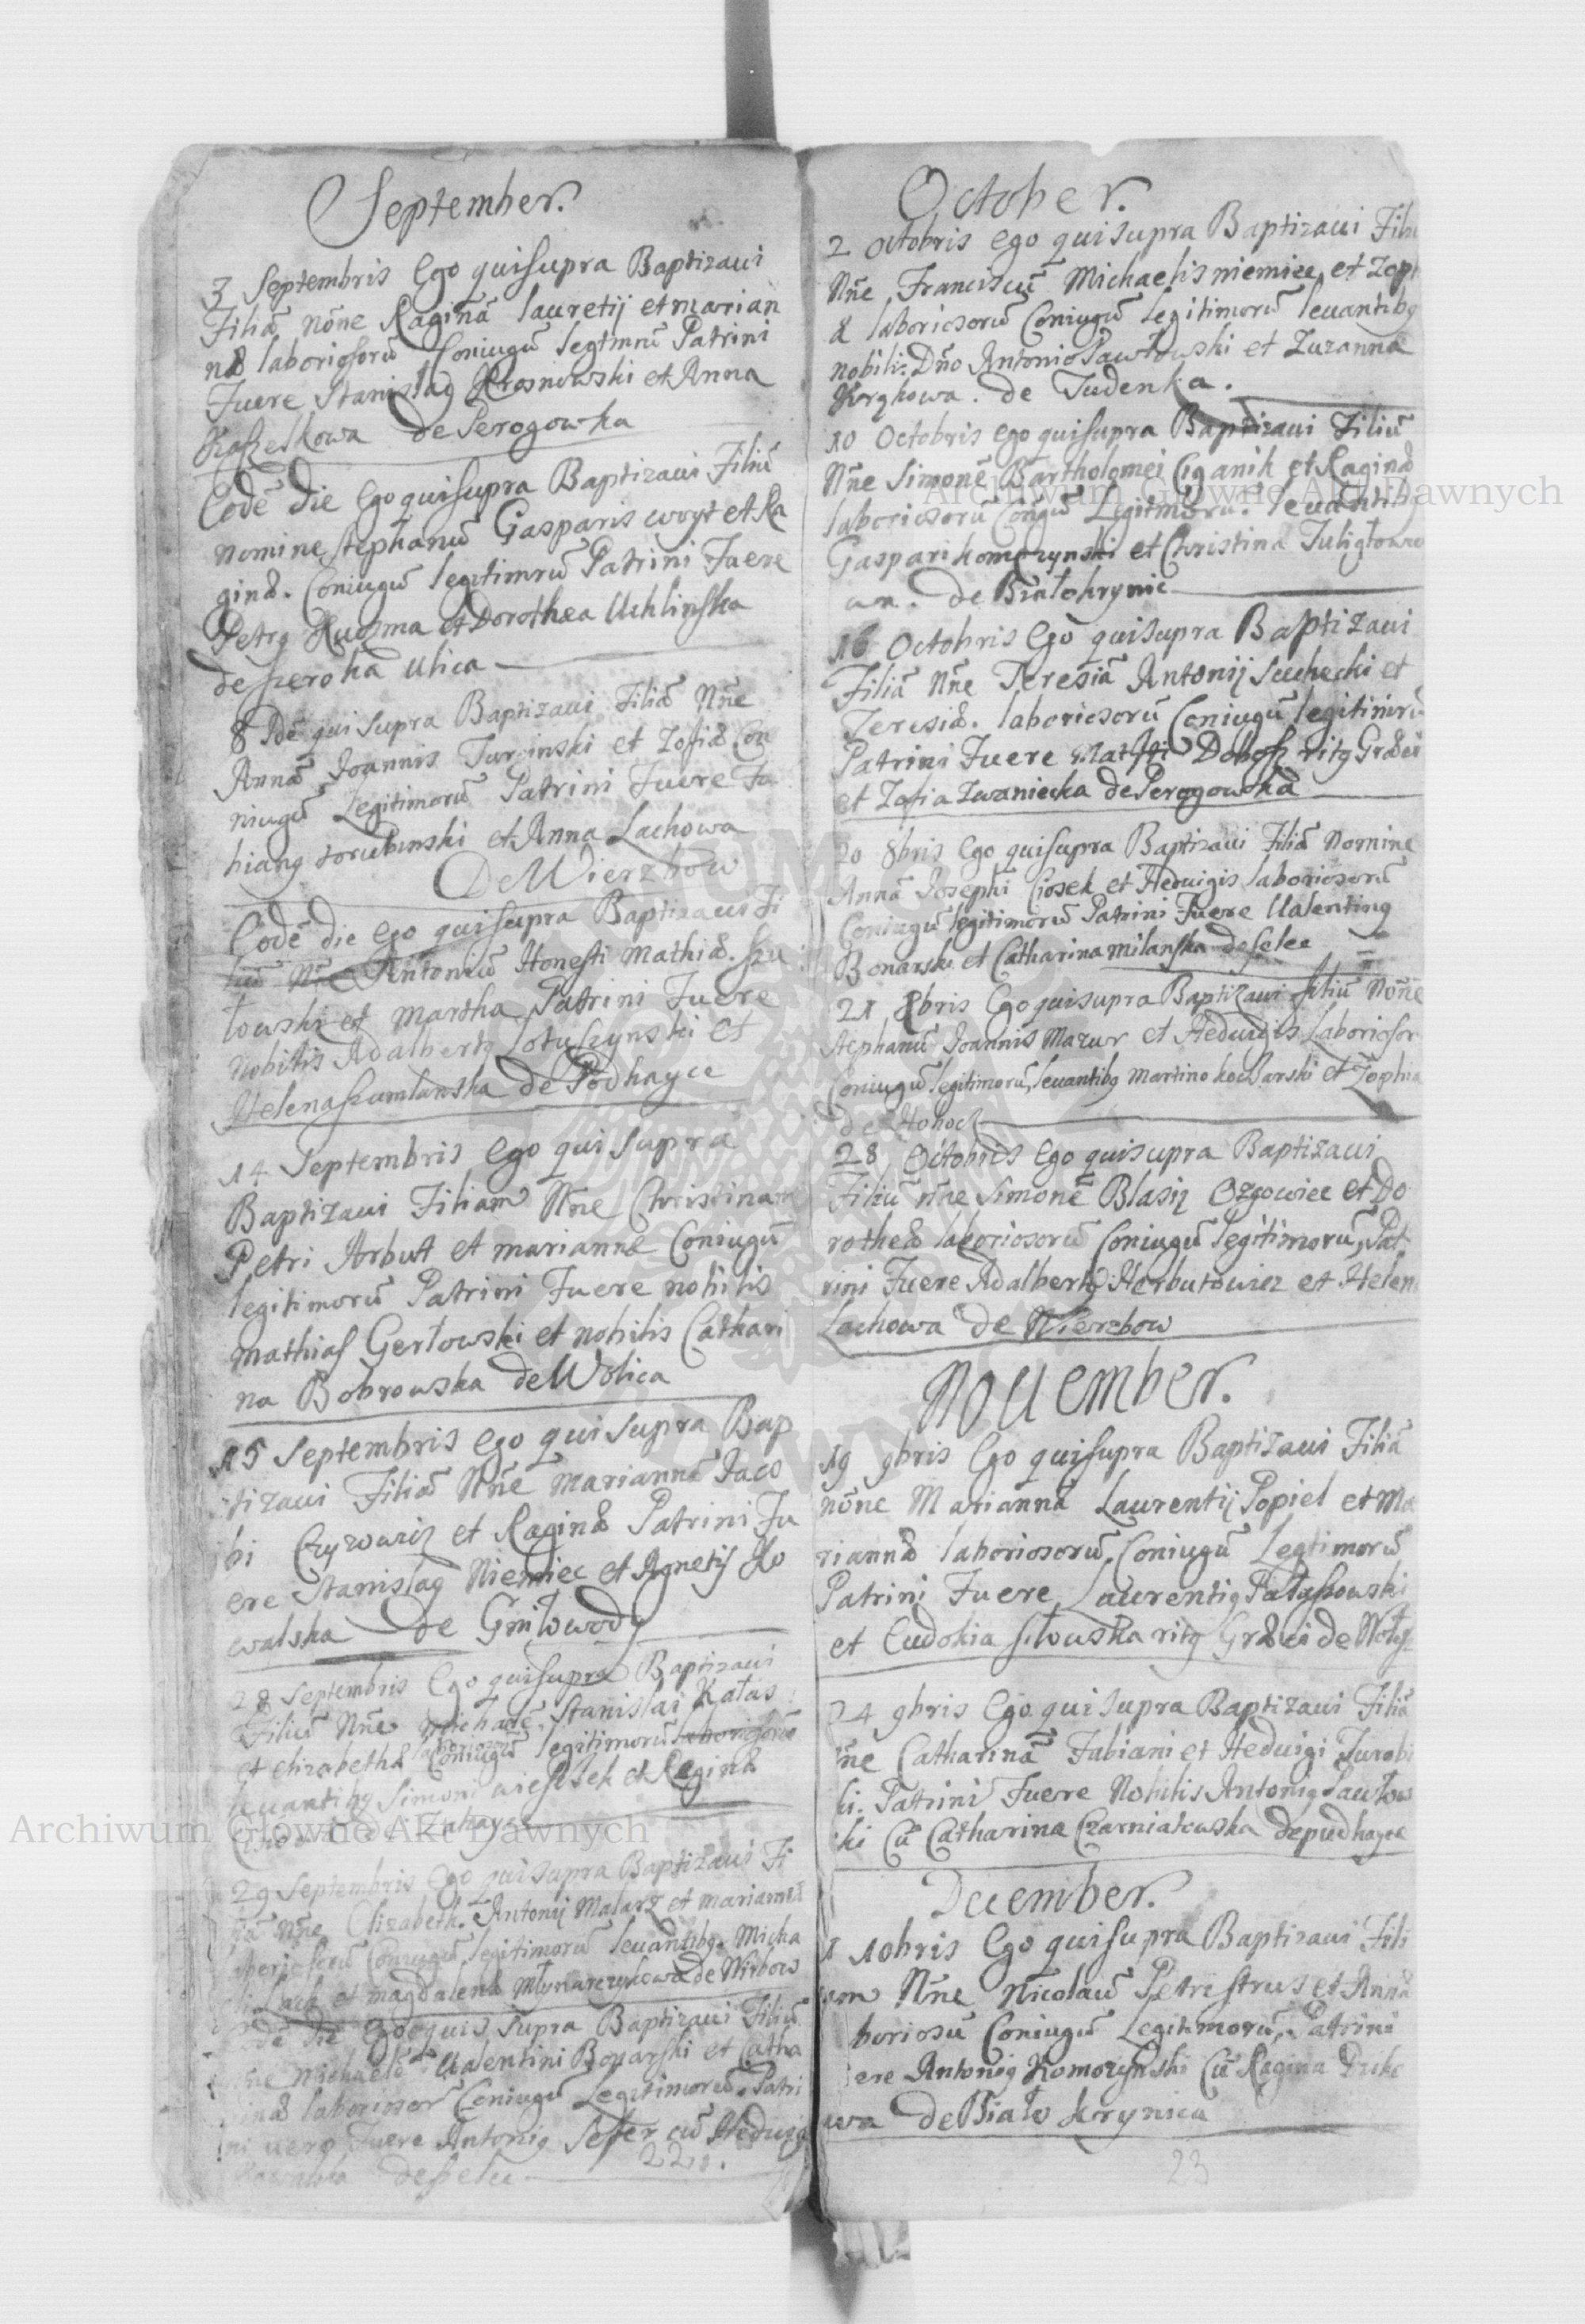 September.
3 Septembris Ego qui supra Baptizaui
Filiã nõne Raginã lauretij et marian
næ laboriosorũ Coniugũ legtmrũ Patrini
Fuere Stanislaq Krosnowski et Anna
Kaszelkowa de Perogowka
Eodẽ die Ego qui supra Baptizaui Filiũ
nomine stephanũ Gasparis woyt et Ra
ginæ. Coniugũ legitimrũ Patrini Fuere
Petrq Kuozma et Dorothea Uchlinska
de szeroka Ulica
8 Idẽ qui supra Baptizaui Filiã Nñe
Annã Joannis Turcinski et Zofiæ Con
niugũ Legitimorũ Patrini Fuere Fa
bianq torubinski et Anna Lachowa
De Wierzbow
Eodẽ die ego qui supra Baptizaui Fi
liũ Nñe Antoniũ Honesti Mathiæ. szu
towski et Martha Patrini Fuere
Nobilis Adalbertq Sotulzynski et
Helena szumlanska de Podhayce
14 Septembris ego qui supra
Baptizaui Filiam Nñe Christinam
Petri Arbut et mariannæ Coniugũ
legitimorũ Patrini Fuere nobilis
mathias Gertowski et nobilis Cathari
na Bobrowska de Wolica
15 Septembris ego qui supra Bap
tizaui Filiã Nñe mariannã Jaco
bi Czyzowicz et Raginæ Patrini Fu
ere Stanislaq Niemiec et Agnetis Ko
walska de Gniłowody
28 Septembris Ego qui supra Baptizaui
Filiũ Nñe Michaelẽ Stanislai Kałas
et elizabethæ laboriosorũ Coniugũ legitimorũ laboriosorũ
leuantibq Simoni wieszsek et Reginæ
de Zahayce
29 Septembris Ego qui supra Baptizaui Fi
liã Nñe Elizabeth. Antonij Malarz et mariannæ
laboriosorũ Coniugũ legitimorũ leuantibq Micha
eli Lach et magdalenæ Młynarczykowa de Wirbow
Eodẽ die Ego quis supra Baptizaui Filiũ
Nñe Michaelẽ Ualentini Bonarski et Catha
rinæ laboriosor Coniugũ Legitimorũ. Patri
ni uero Fuere Antoniq Sesser cũ Heduigi
de sielee
22
October.
2 octobris ego qui supra Baptizaui Filiũ
Nñe Franciscũ Michaelis niemiec et Zoph
æ laboriosorũ Coniugũ legitimorũ leuantibq
nobili: Dño Antonio Pawłowski et Zuzanna
Krzkowa. de Judenka.
10 Octobris ego qui supra Baptizaui Filiũ
Nñe Simonẽ Bartholomei Ciganik et Raginæ
laboriosorũ Cõngũ Legitmorũ. leuantibq
Gaspari komorzynski et Christina Tuligłowo
wa. de Białokrynic
16 Octobris Ego qui supra Baptizaui
Filiã Nñe Teresiã Antonij Suchecki et
Teresiæ. laboriosorũ Coniugũ legitimrũ
Patrini Fuere Mattij Dobosz ritq Græci
et Zofia Zwaniecka de Perogowka
20 8bris Ego qui supra Baptizaui Filiã Nomine
Annã Josephi Ciosek et Heduigis laboriosorũ
Coniugũ legitimorũ Patrini Fuere Ualentinq
Bonarski et Catharina milanska de selee
21 8bris Ego qui supra Baptizaui filiũ Nõne
stephanũ Joannis Mazur et Heduigis Laboriosor
Coniugũ legitimorũ, leuantibq Martino kocbarski et Zophia
de Honocz
28 Octobris Ego qui supra Baptizaui
Filiũ nñe Simonẽ Blasij Ozgowiec et Do
rotheæ laboriosorũ Coniugũ legitimorũ, Pat
rini Fuere Adalbertq Herbutowicz et Helen
Lachowa de Wierzbow
Nouember.
19 9bris Ego qui supra Baptizaui Filiã
nõne Mariannã Laurentij Popiel et Ma
riannæ laboriosorũ, Coniugũ Legtimorũ
Patrini Fuere Laurentiq Pałaszowski
et Eudokia siłowska ritq Græci de
24 9bris Ego qui supra Baptizaui Filiã
nñe Catharinã Fabiani et Heduigi Turobi
ki. Patrini Fuere Nobilis Antoniq Pawłow
ski Cũ Catharina Czarniatowska de podhayce
December.
1 10bris Ego qui supra Baptizaui Fili
um Nñe Nicolaũ Petri strus et Annæ
boriosũ Coniugũ Legitimorũ, Patrini
ere Antoniq Komorzynski Cũ Ragina Dzik
owa de Biało krynica
23
Archiwum Główne Akt Dawnych
Archiwum Główne Akt Dawnych